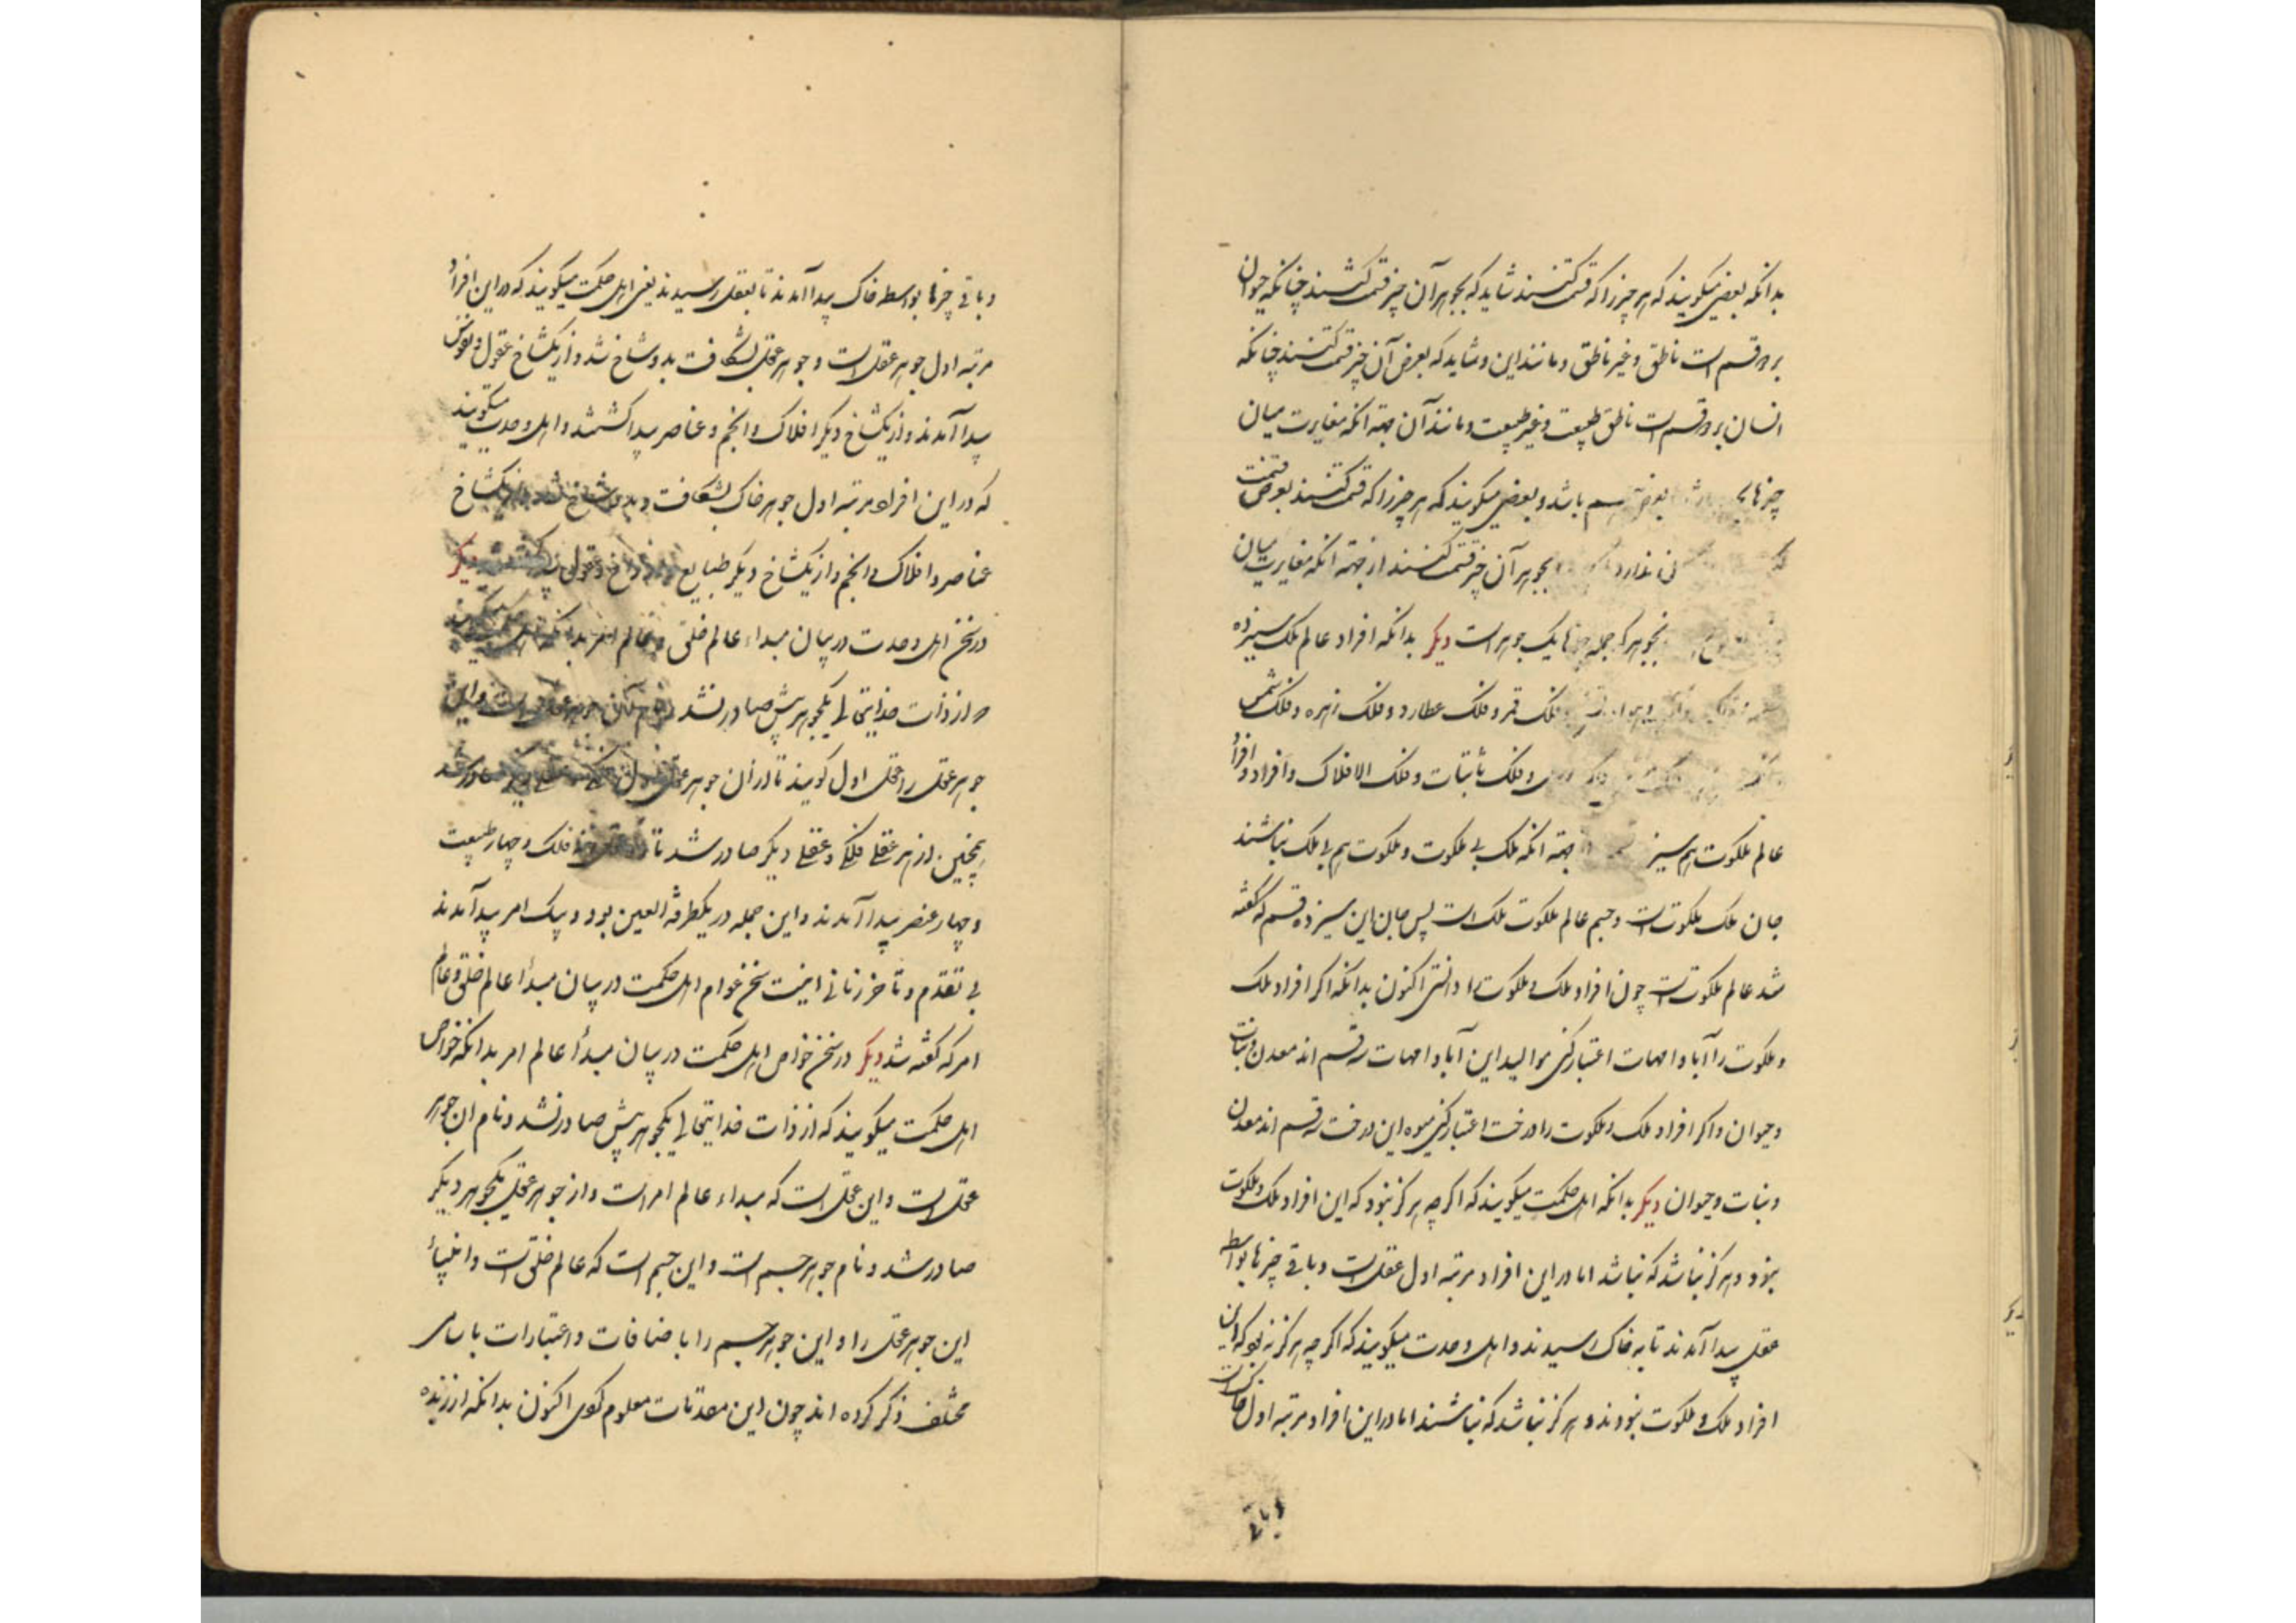 بدانکه بعضی میگویند که هر چیز را که قسمت کنند شاید که بجوهر آن چیز قسمت کنند چنانکه حیوان
بر دو قسم است ناطق و غیر ناطق و مانند این و شاید که بعرض آن چیز قسمت کنند چنانکه
انسان بر دو قسم است ناطق طبیعت و غیر طبیعت و مانند آن جهة آنکه مغایرت میان
چیزها باشد و بعضی میگویند که هر چیز را که قسمت کنند بعرض قسمت
بجوهر آن چیز قسمت کنند از جهة انکه مغایرت میان
یک جوهر است دیگر بدانکه افراد عالم ملک سیزده
فلک قمر و فلک عطارد و فلک زهره و فلک شمس
و فلک ثابتات و فلک الافلاک و افراد
عالم ملکوت هم سیز جهة انکه ملک بی ملکوت و ملکوت هم بی ملک نباشند
جان ملک ملکوت است و جسم عالم ملکوت ملک است پس جان این سیزده قسم که گفته
شد عالم ملکوت است چون افراد ملک و ملکوت را دانستی اکنون بدانکه اگر افراد ملک
و ملکوت را آبا و امهات اعتبار کنی موالید این آبا و امهات سه قسم اند معدن و نبات
و حیوان و اگر افراد ملک و ملکوت را درخت اعتبار کنی میوه این درخت سه قسم اند معدن
و نبات و حیوان دیگر بدانکه اهل حکمت میگویند که اگر چه هرگز نبود که این افراد ملک و ملکوت
نبود و هرگز نباشد که نباشد اما در این افراد مرتبه اول عقل است و باقی چیزها بواسطه
عقل پیدا آمدند تا به خاک رسیدند و اهل وحدت میگویند که اگر چه هرگز نه بود که این
افراد ملک و ملکوت نبودند و هرگز نباشد که نباشند اما در این افراد مرتبه اول خاک است
و باقی
و باقی چیزها بواسطه خاک پیدا آمدند تا بعقل رسیدند یعنی اهل حکمت میگویند که در این افراد
مرتبه اول جوهر عقل است و جوهر عقل بشکافت بدو شاخ شد و از یکشاخ عقول و نفوس
پیدا آمدند و از یکشاخ دیگر افلاک و انجم و عناصر پیدا گشتند و اهل وحدت میگویند
که در این افراد مرتبه اول جوهر خاک بشکافت و بدو شاخ شد یکشاخ
عناصر و افلاک و انجم و از یکشاخ دیگر طبایع و عقول دیگر
در سخن اهل وحدت در بیان مبداء عالم خلق و عالم امر
از ذات خدایتعالی یکجوهر بیش صادر نشد و نام آن جوهر عقل است و این
جوهر عقل را عقل اول گویند تا از آن جوهر عقل اول صادر شد
همچنین از هر عقلی فلکی و عقلی دیگر صادر شد تا فلک و چهار طبیعت
و چهار عنصر پیدا آمدند و این جمله در یکطرفة العین بود و بیک امر پیدا آمدند
بی تقدم و تاخر زمانی اینست سخن عوام اهل حکمت در بیان مبدأ عالم خلق و عالم
امر که گفته شد دیگر در سخن خواص اهل حکمت در بیان مبدأ عالم امر بدانکه خواص
اهل حکمت میگویند که از ذات خدایتعالی یکجوهر بیش صادر نشد و نام ان جوهر
عقل است و این عقل است که مبداء عالم امر است و از جوهر عقل یکجوهر دیگر
صادر شد و نام جوهر جسم است و این جسم است که عالم خلق است و انبیاء
این جوهر عقل را و این جوهر جسم را باضافات و اعتبارات باسامی
مختلف ذکر کرده اند چون این مقدمات معلوم کردی اکنون بدانکه